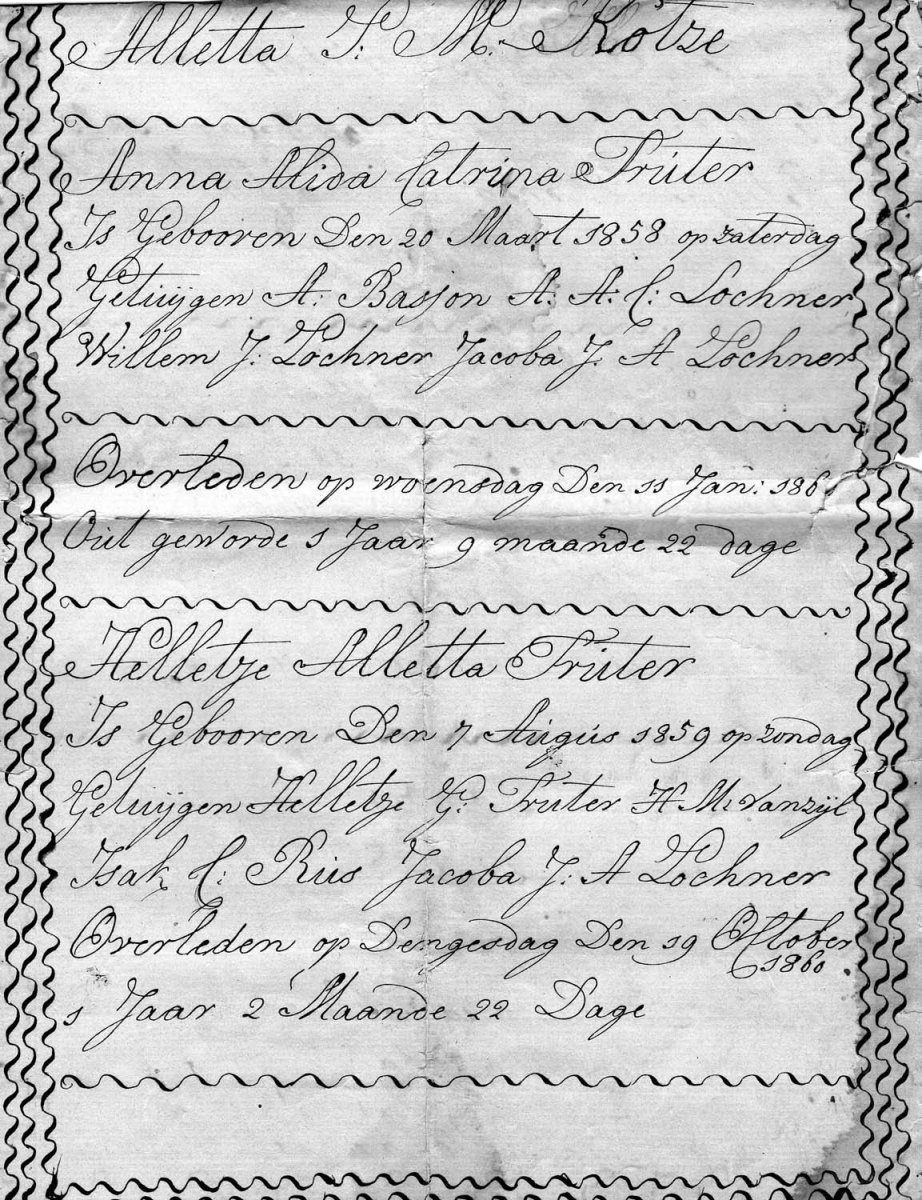 Alletta J. M. Kotze
Anna Alida Catrina Trúter
Is Gebooren Den 20 Maart 1858 op zaterdag
Getuÿgen A: Basjon A: A. C: Lochner
Willem J: Lochner Jacoba J. A Lochner
Overleden op woensdag Den 11 Jan:
Out geworde 1 Jaar 9 maande 22 dage
Helletje Alletta Trúter
Is Gebooren Den 7 Aúgús 1859 op zondag
Getuÿgen Helletze G. Trúter H. M. vanzÿl
Isak C: Rúis Jacoba J: A Lochner
Overleden op Dengesdag Den 19 Oktober
1860
1 Jaar 2 Maande 22 Dage